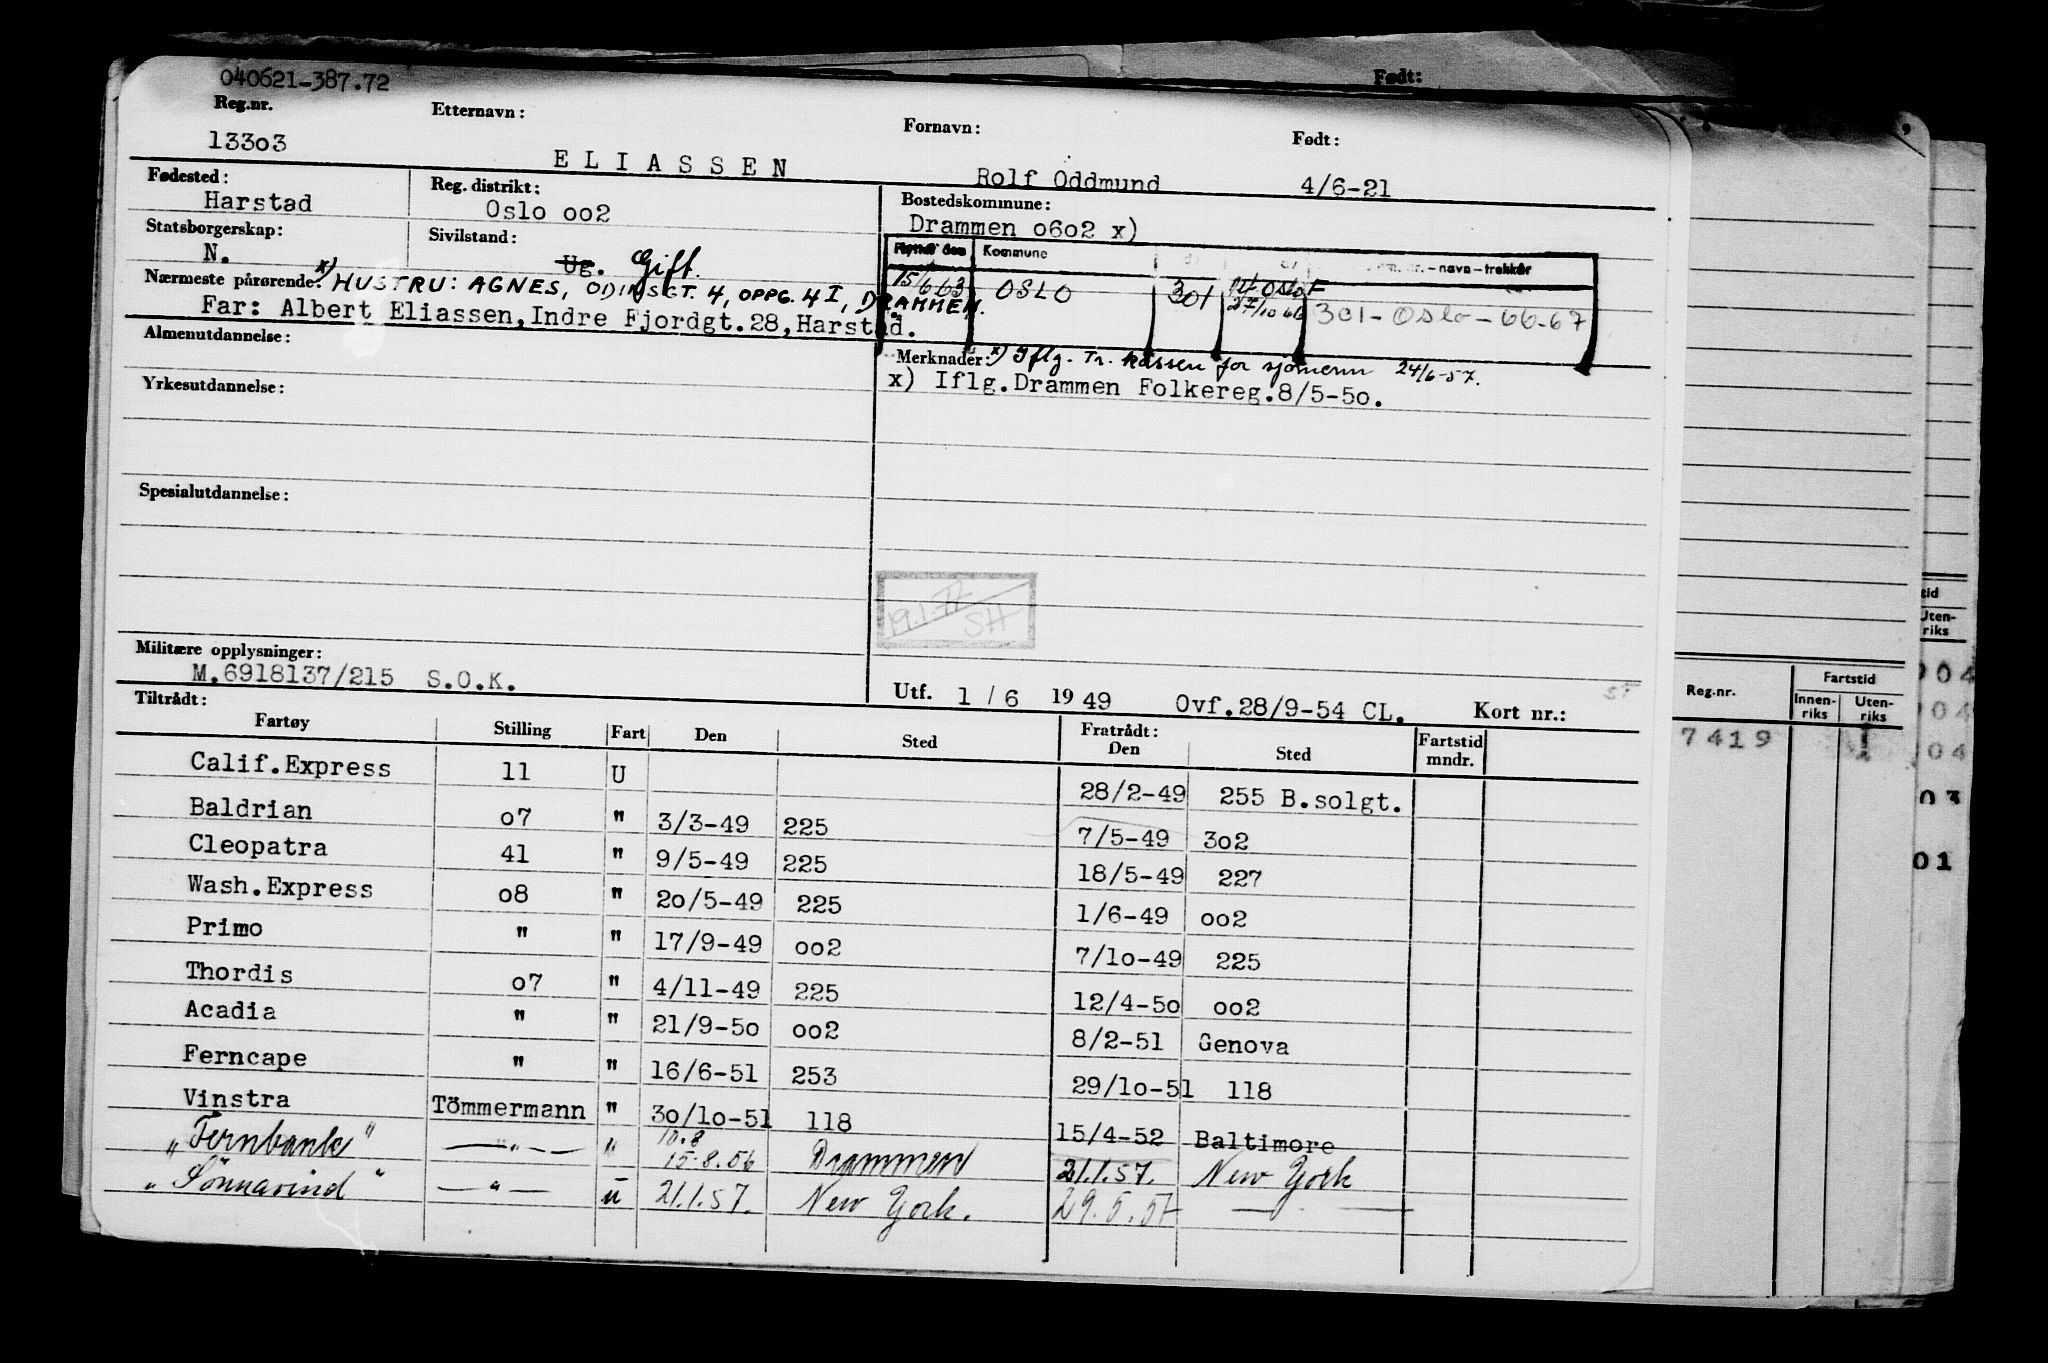 Født:
040621-387.72
Reg.nr. Etternavn: Fornavn: Født:
13303 ELIASSEN Rolf Oddmund 4/6-21
Fødested: Reg. distrikt: Bostedskommune:
Harstad Oslo oo2 Drammen o6o2 x)
Statsborgerskap: Sivilstand:
N. Ug. Gift.
Kommune
-navn-trekkår
15/6 63 OSLO 301 27/10 66 301-Oslo-66-67
Nærmeste pårørende: x) HUSTRU: AGNES, ODINSGT. 4, OPPG. 4 I, DRAMMEN.
Far: Albert Eliassen, Indre Fjordgt.28, Harstad.
Almenutdannelse:
Merknader: x) Iflg. Tr. kassen for sjømenn 24/6-57.
x) Iflg.Drammen Folkereg.8/5-5o.
Yrkesutdannelse:
Spesialutdannelse:
19.1.72
SH
Militære opplysninger:
M.6918137/215 S.O.K.
Utf. 1 / 6 19 49 Ovf.28/9-54 CL. Kort nr.:
Tiltrådt: Fratrådt:
Fartøy Stilling Fart Den Sted Den Sted Fartstid mndr.
Calif.Express 11 U 28/2-49 255 B.solgt.
Baldrian o7 " 3/3-49 225 7/5-49 3o2
Cleopatra 41 " 9/5-49 225 18/5-49 227
Wash.Express o8 " 2o/5-49 225 1/6-49 oo2
Primo " " 17/9-49 oo2 7/1o-49 225
Thordis o7 " 4/11-49 225 12/4-5o oo2
Acadia " " 21/9-5o oo2 8/2-51 Genova
Ferncape " " 16/6-51 253 29/1o-51 118
Vinstra Tömmermann " 3o/1o-51 118 15/4-52 Baltimore
10.8
„Fernbank" —"— " 15.8.56 Drammen 21.1.57. New York
„Sönnavind" —"— u 21.1.57. New York. 29.5.57 —"—
Reg.nr. Fartstid
Innen-riks Uten-riks
7419
tid
Uten-
riks
904
04
04
03
01